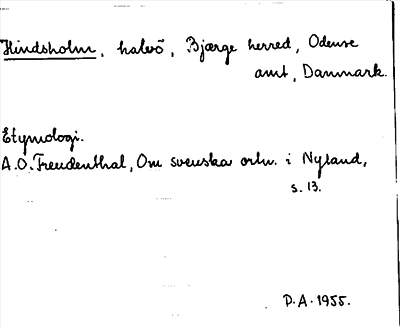 Hindsholm, halvö, Bjærge herred, Odense
amt, Danmark.
Etymologi.
A.O. Freudenthal, Om svenska ortn. i Nyland,
s. 13.
D.A. 1955.